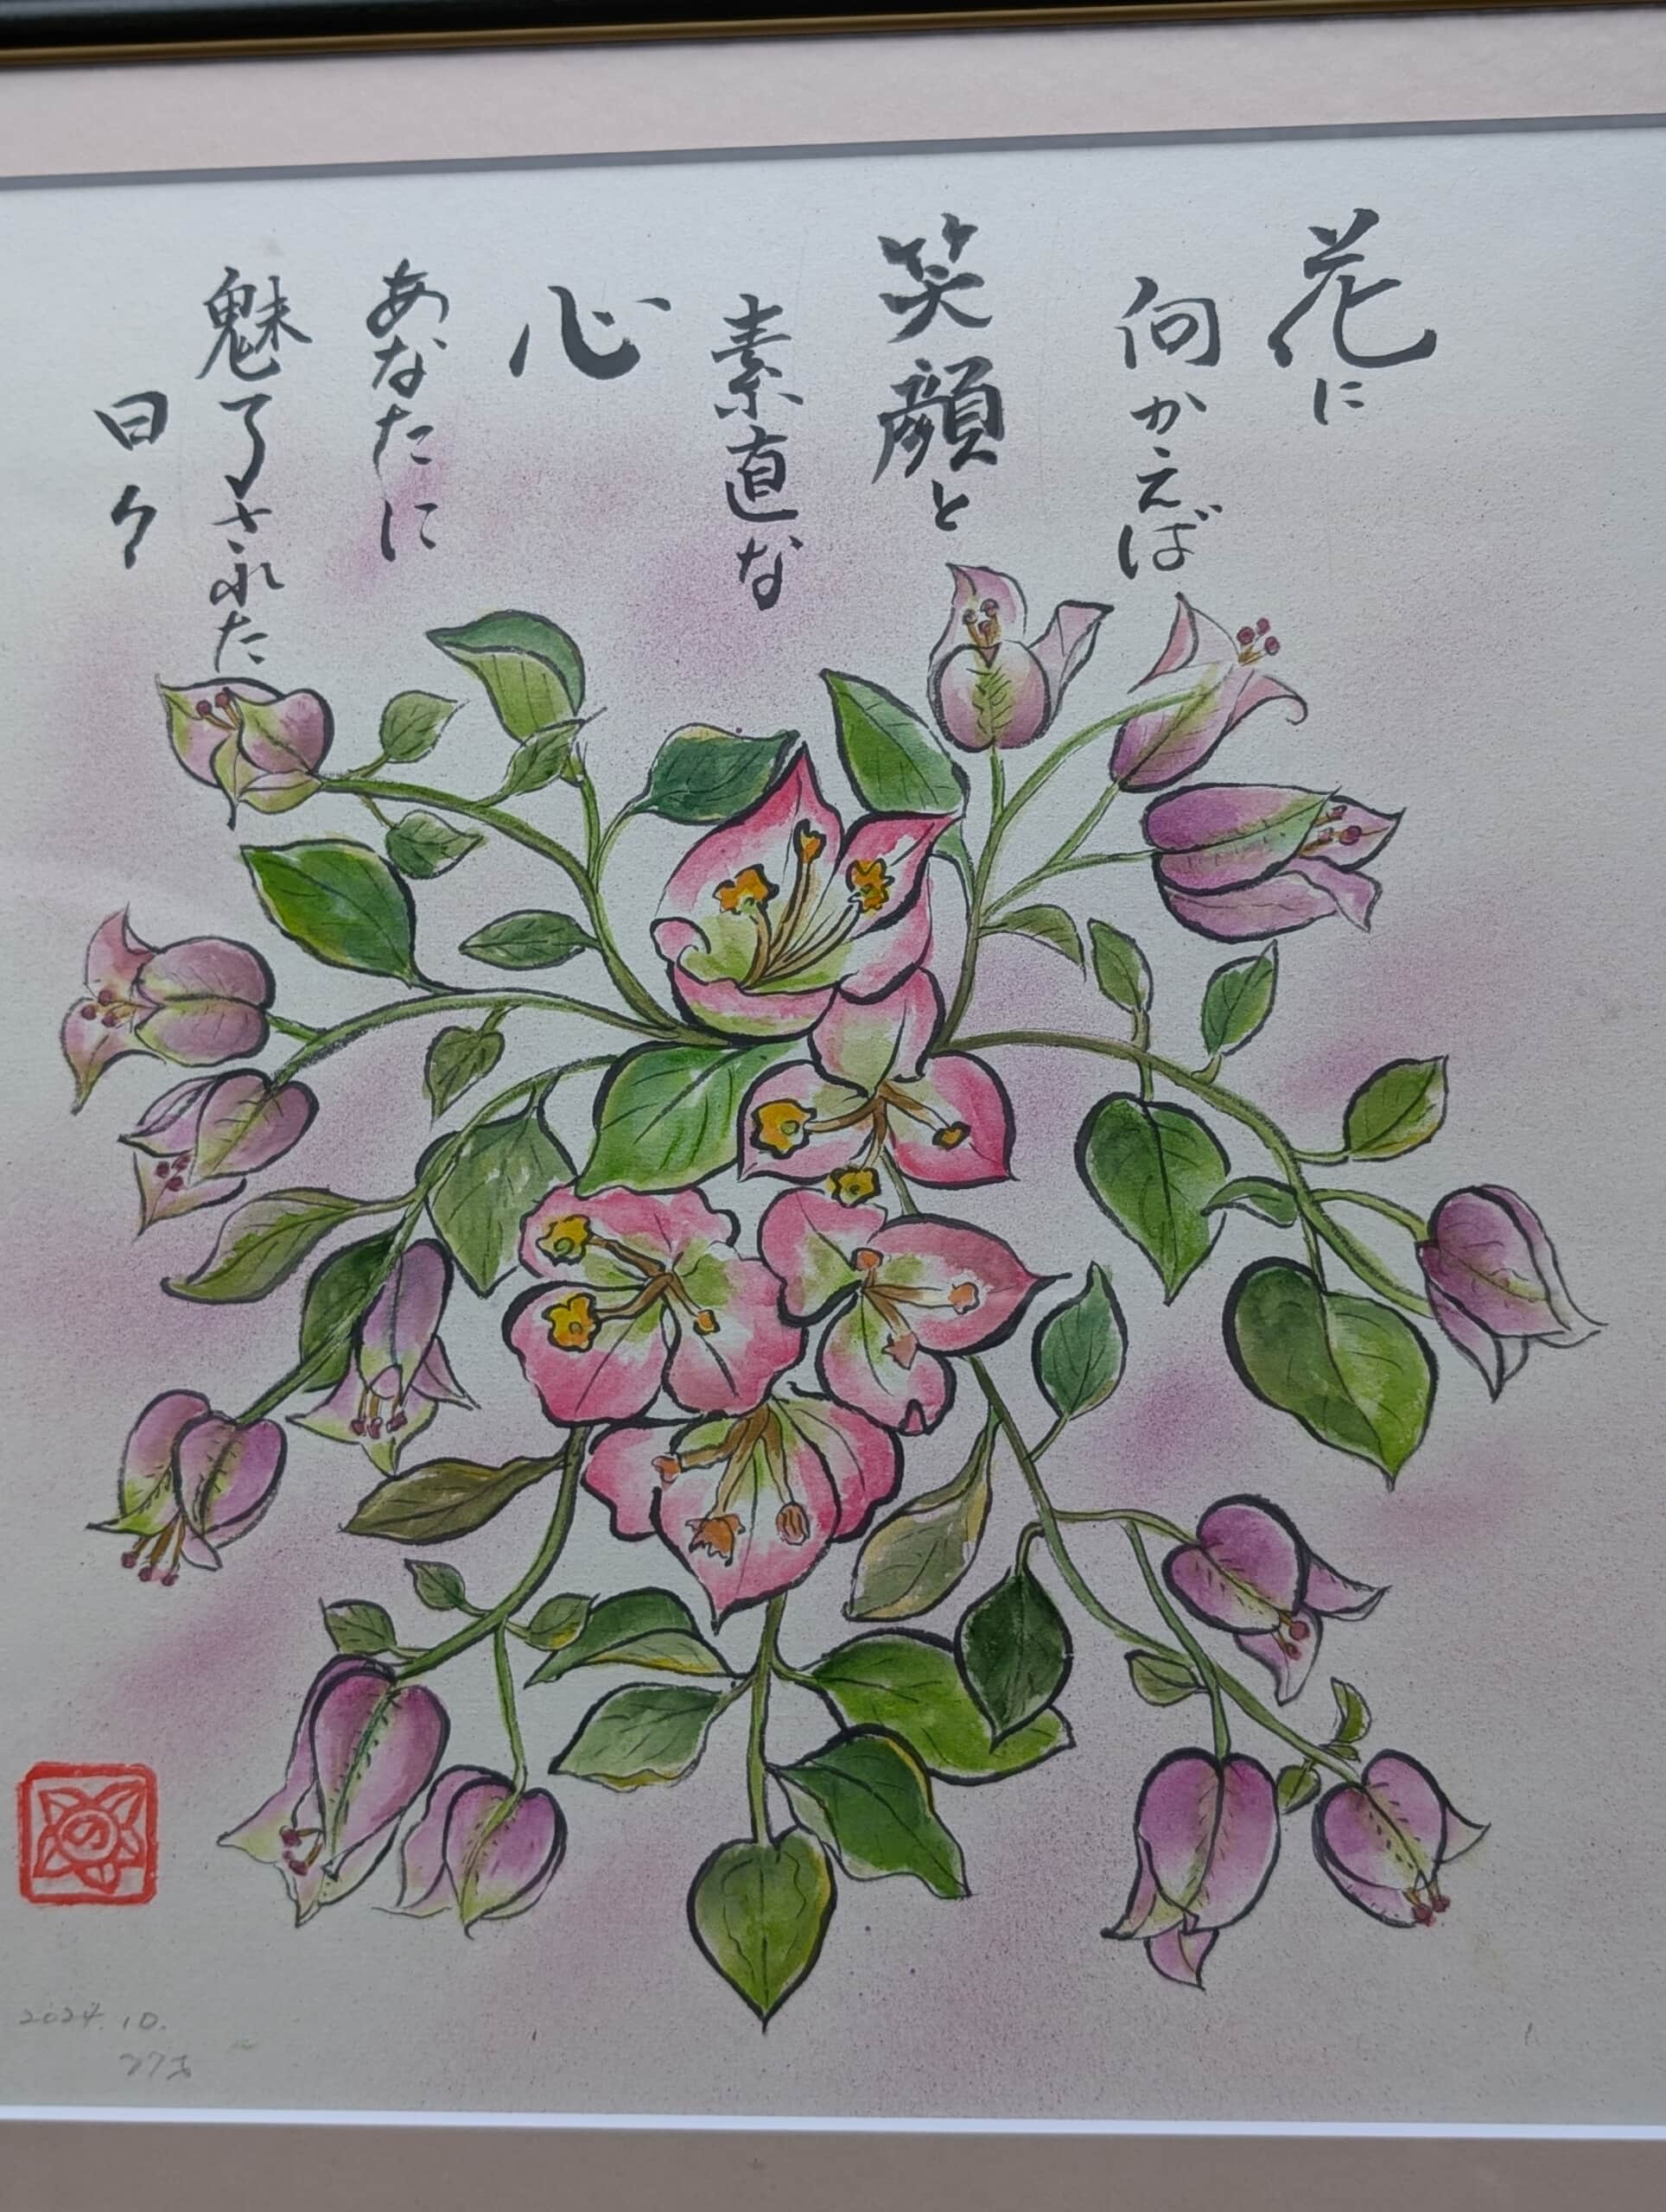 花に
向かえば
笑顔と
素直な
心
あなたに
魅了された
日々
の
2024.10.